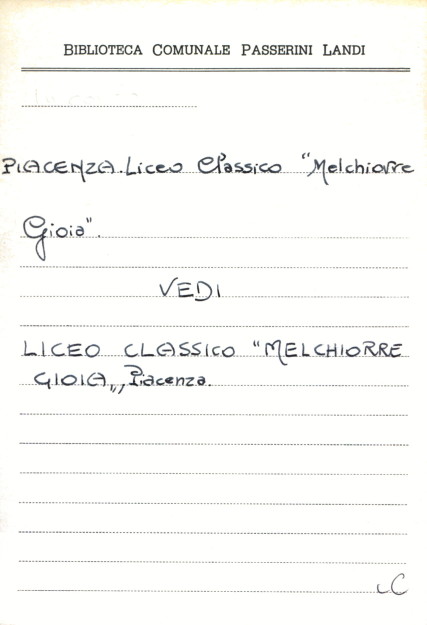 BIBLIOTECA COMUNALE PASSERINI LANDI
PIACENZA. Liceo Classico "Melchiorre
Gioia".
VEDI
LICEO CLASSICO "MELCHIORRE
GIOIA,,, Piacenza.
LC